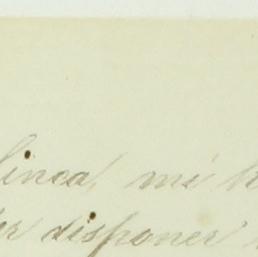 linea, mi
disponer